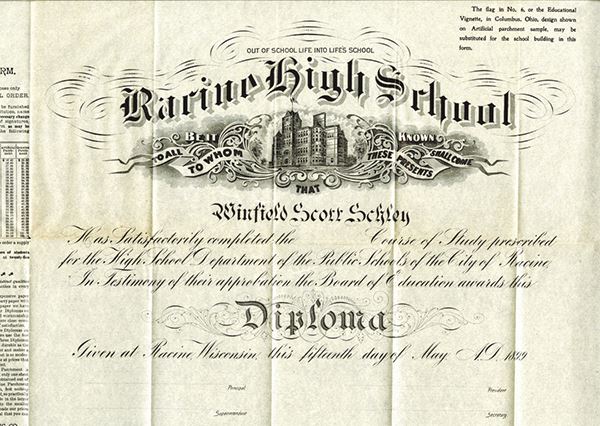 The flag in No. 6, or the Educational
Vignette, in Columbus, Ohio, design shown
on Artificial parchment sample, may be
substituted for the school building in this
form.
OUT OF SCHOOL LIFE INTO LIFE'S SCHOOL
Racine High School
BE IT KNOWN
TO ALL TO WHOM THESE PRESENTS SHALL COME
THAT
Winfield Scott Schley
Has Satisfactorily completed the Course of Study prescribed
for the High School Department of the Public Schools of the City of Racine,
In Testimony of their approbation the Board of Education awards this
Diploma
Given at Racine Wisconsin, this fifteenth day of May A.D. 1899
Principal
President
Superintendent
Secretary
RM.
L ORDER.
be furnished
itution, name
cessary change
f signatures,
as may be
the following